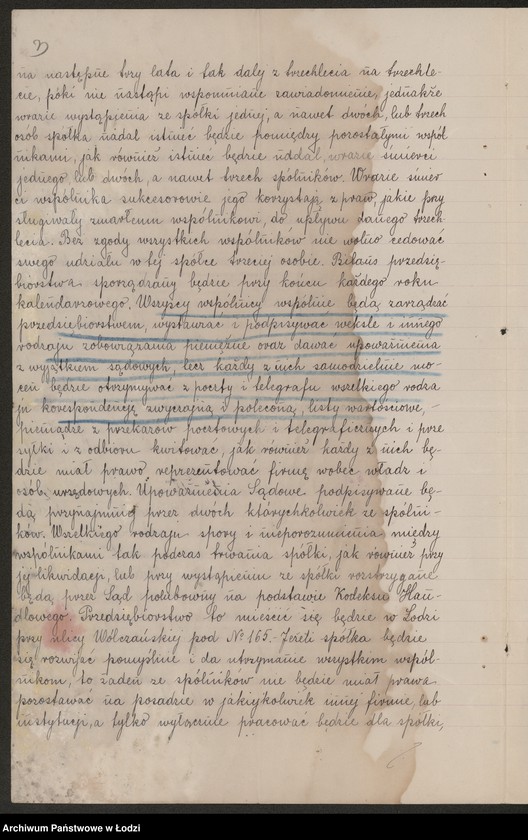 3
na następne trzy lata i tak dalej z trzechlecia na trzechle-
cie, póki nie nastąpi wspomniane zawiadomienie, jednakże
wrazie wystąpienia ze spółki jednej, a nawet dwóch, lub trzech
osób spółka nadal istnieć będzie pomiędzy pozostałymi wspól
nikami, jak również istnieć będzie nadal, wrazie śmierci
jednego lub dwóch, a nawet trzech spólników. Wrazie śmier
ci wspólnika sukcesorowie jego korzystają z praw, jakie przy
sługiwały zmarłemu wspólnikowi, do upływu danego trzech
lecia. Bez zgody wszystkich wspólników nie wolno cedować
swego udziału w tej spółce trzeciej osobie. Bilans przedsię-
biorstwa sporządzany będzie przy końcu każdego roku
kalendarzowego. Wszyscy wspólnicy wspólnie będą zarządzać
przedsiębiorstwem, wystawiać i podpisywać weksle i innego
rodzaju zobowiązania pieniężne oraz dawać upoważnienia
z wyjątkiem sądowych, lecz każdy z nich samodzielnie mo-
cen będzie otrzymywać z poczty i telegrafu wszelkiego rodza
ju korespondencję zwyczajną i poleconą, listy wartościowe, -
pieniądze z przekazów pocztowych i telegraficznych i prze
syłki i z odbioru kwitować, jak również każdy z nich bę-
dzie miał prawo reprezentować firmę wobec władz i
osób urzędowych. Upoważnienia Sądowe podpisywane bę-
dą przynajmniej przez dwóch którychkolwiek ze spólni-
ków. Wszelkiego rodzaju spory i nieporozumienia między
wspólnikami tak podczas trwania spółki, jak również przy
jej likwidacji, lub przy wystąpieniu ze spółki rozstrzygane
będą przez Sąd polubowny na podstawie Kodeksu Han-
dlowego. Przedsiębiorstwo to mieścić się będzie w Łodzi
przy ulicy Wólczańskiej pod № 165.- Jeżeli spółka będzie
się rozwijać pomyślnie i da utrzymanie wszystkim wspól-
nikom, to żaden ze spólników nie będzie miał prawa
pozostawać na posadzie w jakiejkolwiek innej firmie, lub
instytucji, a tylko wyłącznie pracować będzie dla spółki,
Archiwum Państwowe w Łodzi